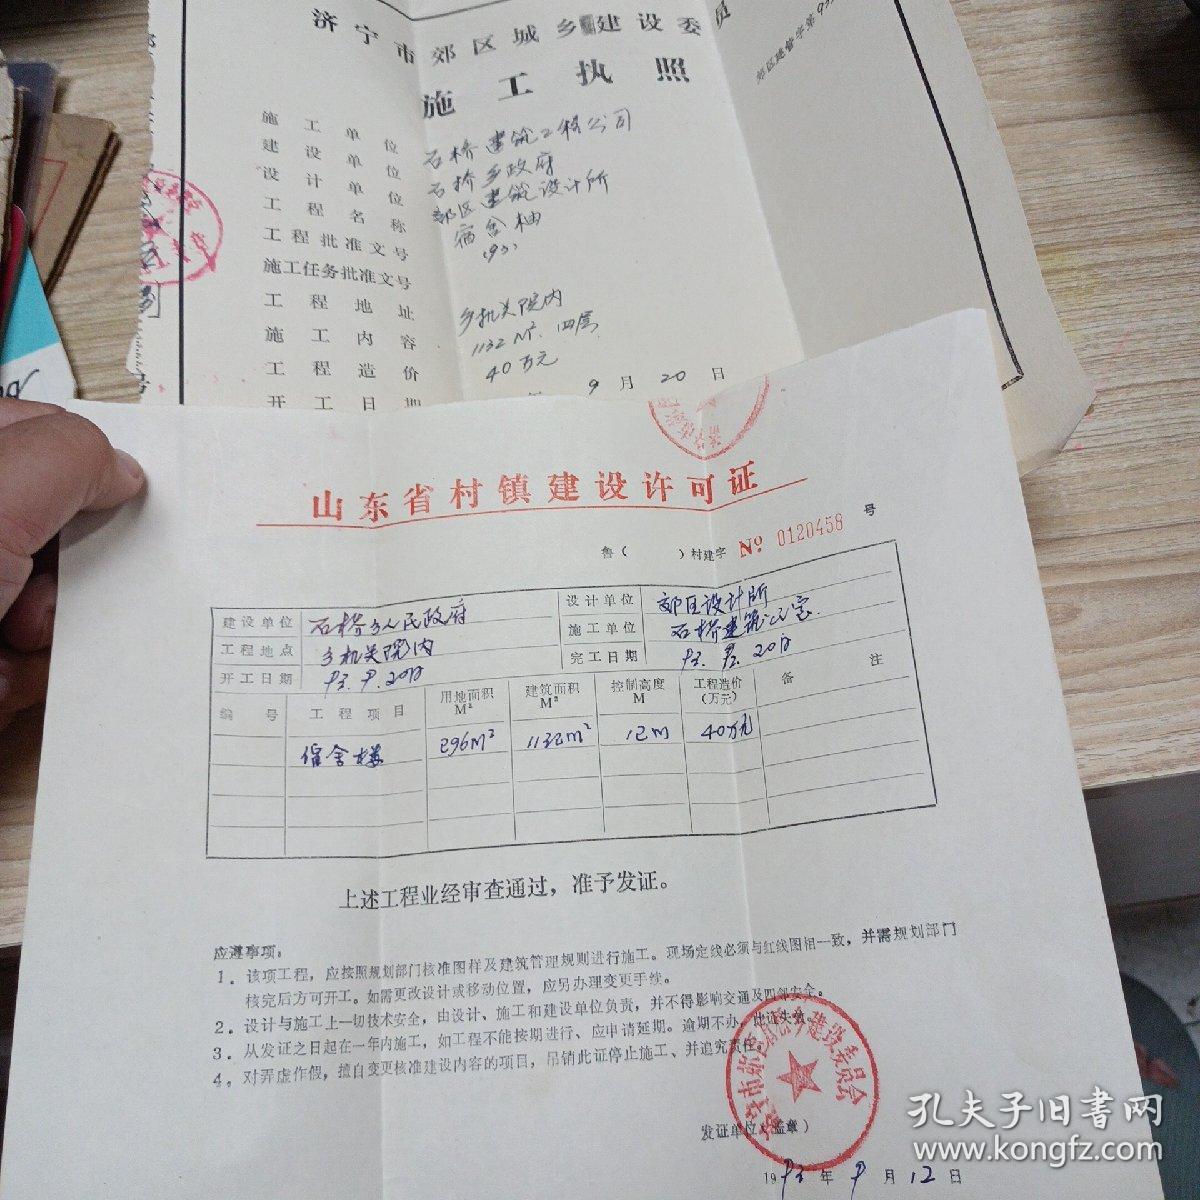 济宁市郊区城乡建设委员
郊区建管字第93
施工执照
施工单位 石桥建筑工程公司
建设单位 石桥乡政府
设计单位 郊区建筑设计所
工程名称 宿舍楼
工程批准文号 93
施工任务批准文号
工程地址 乡机关院内
施工内容 1132M² 四层
工程造价 40万元
开工日期
9月20日
山东省村镇建设许可证
鲁( )村建字 Nº 0120458 号
建设单位 石桥乡人民政府 设计单位 郊区设计所
工程地点 乡机关院内 施工单位 石桥建筑公
开工日期 93.9.20日 完工日期 20日
编号 工程项目 用地面积M² 建筑面积M² 控制高度M 工程造价(万元) 备注
宿舍楼 296m² 1132m² 12m 40万元
上述工程业经审查通过，准予发证。
应遵事项：
1．该项工程，应按照规划部门核准图样及建筑管理规则进行施工。现场定线必须与红线图相一致，并需规划部门
核完后方可开工。如需更改设计或移动位置，应另办理变更手续。
2．设计与施工上一切技术安全，由设计、施工和建设单位负责，并不得影响交通及四邻安全。
3．从发证之日起在一年内施工，如工程不能按期进行、应申请延期。逾期不办，此证失效。
4．对弄虚作假，擅自变更核准建设内容的项目，吊销此证停止施工、并追究责任。
济宁市郊区城乡建设委员会
发证单位（盖章）
1993年9月12日
孔夫子旧书网
www.kongfz.com